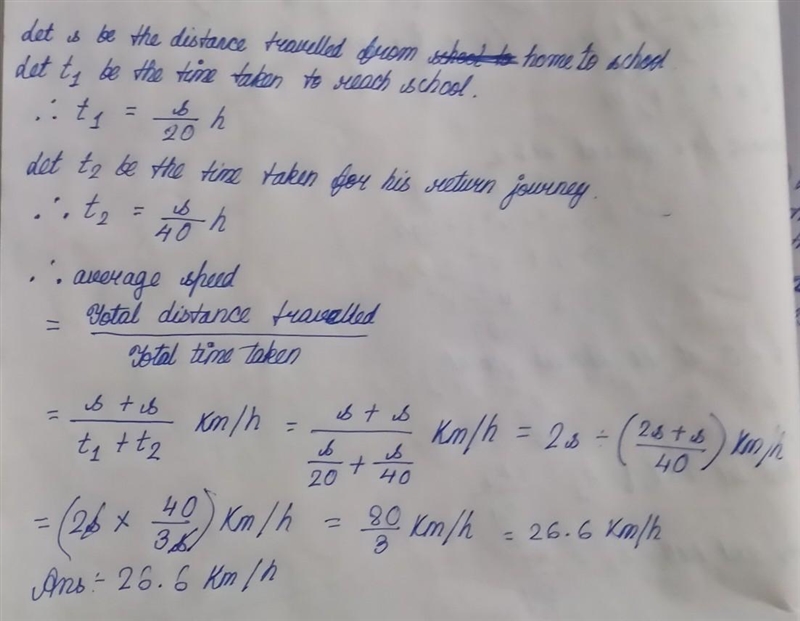 Let s be the distance travelled from school to home to school
Let t₁ be the time taken to reach school.
∴ t₁ = s/20 h
Let t₂ be the time taken for his return journey.
∴ t₂ = s/40 h
∴ average speed
= Total distance travelled / Total time taken
= (s + s)/(t₁ + t₂) Km/h = (s + s)/(s/20 + s/40) Km/h = 2s ÷ ((2s + s)/40) Km/h
= (2s × 40/3s) Km/h = 80/3 Km/h = 26.6 Km/h
Ans÷ 26.6 Km/h